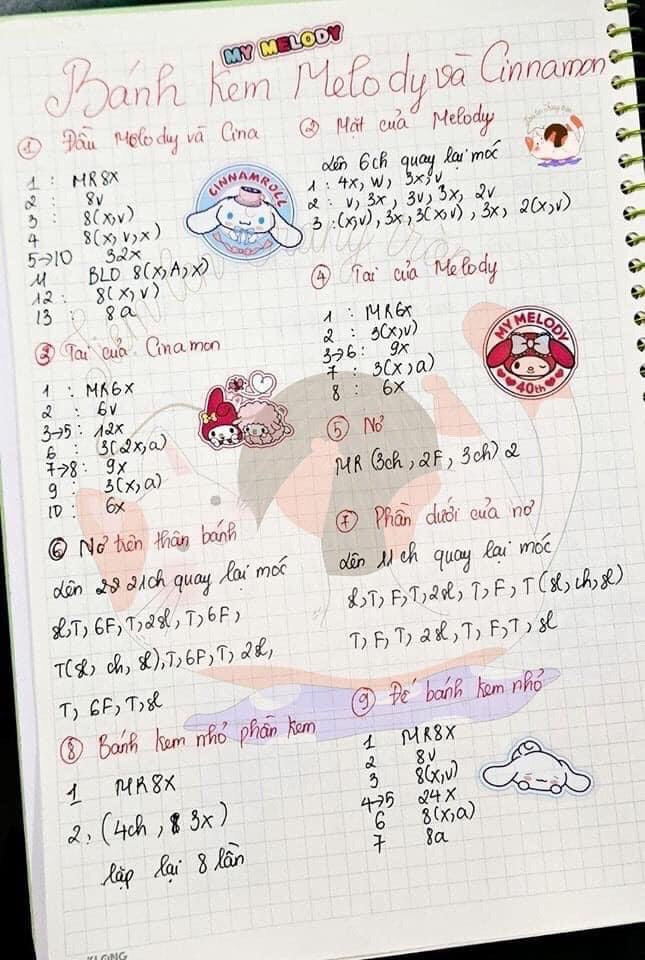 MY MELODY
Bánh kem Melody và Cinnamon
① Đầu Melody và Cina
1 : MR8X
2 : 8v
3 : 8(x,v)
4 8(x,v,x)
5→10 32x
11 BLO 8(x,A,x)
12 : 8(x,v)
13 : 8a
② Mặt của Melody
lên 6ch quay lại móc
1 : 4x, W, 3x, v
2 : v, 3x, 3v, 3x, 2v
3 : (x,v), 3x, 3(x,v), 3x, 2(x,v)
CINNAMROLL
③ Tai của Cinamon
1 : MR6X
2 : 6v
3→5 : 12x
6 : 3(2x,a)
7→8 : 9x
9 : 3(x,a)
10 : 6x
④ Tai của Melody
1 : MR6x
2 : 3(x,v)
3→6 : 9x
7 : 3(x,a)
8 : 6x
MY MELODY
40th
⑤ Nơ
MR (3ch, 2F, 3ch) 2
⑥ Nơ trên thân bánh
lên 21ch quay lại móc
sl, T, 6F, T, 2sl, T, 6F,
T(sl, ch, sl), T, 6F, T, 2sl,
T, 6F, T, sl
⑦ Phần dưới của nơ
lên 11ch quay lại móc
sl, T, F, T, 2sl, T, F, T (sl, ch, sl)
T, F, T, 2sl, T, F, T, sl
⑧ Bánh kem nhỏ phần kem
1 MR8X
2, (4ch, 3x)
lặp lại 8 lần
⑨ Đế bánh kem nhỏ
1 MR8X
2 8v
3 8(x,v)
4→5 24x
6 8(x,a)
7 8a
KLONG